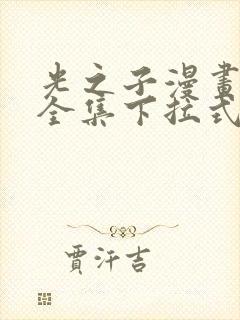 光之子漫畫
全集下拉式
賈汗吉